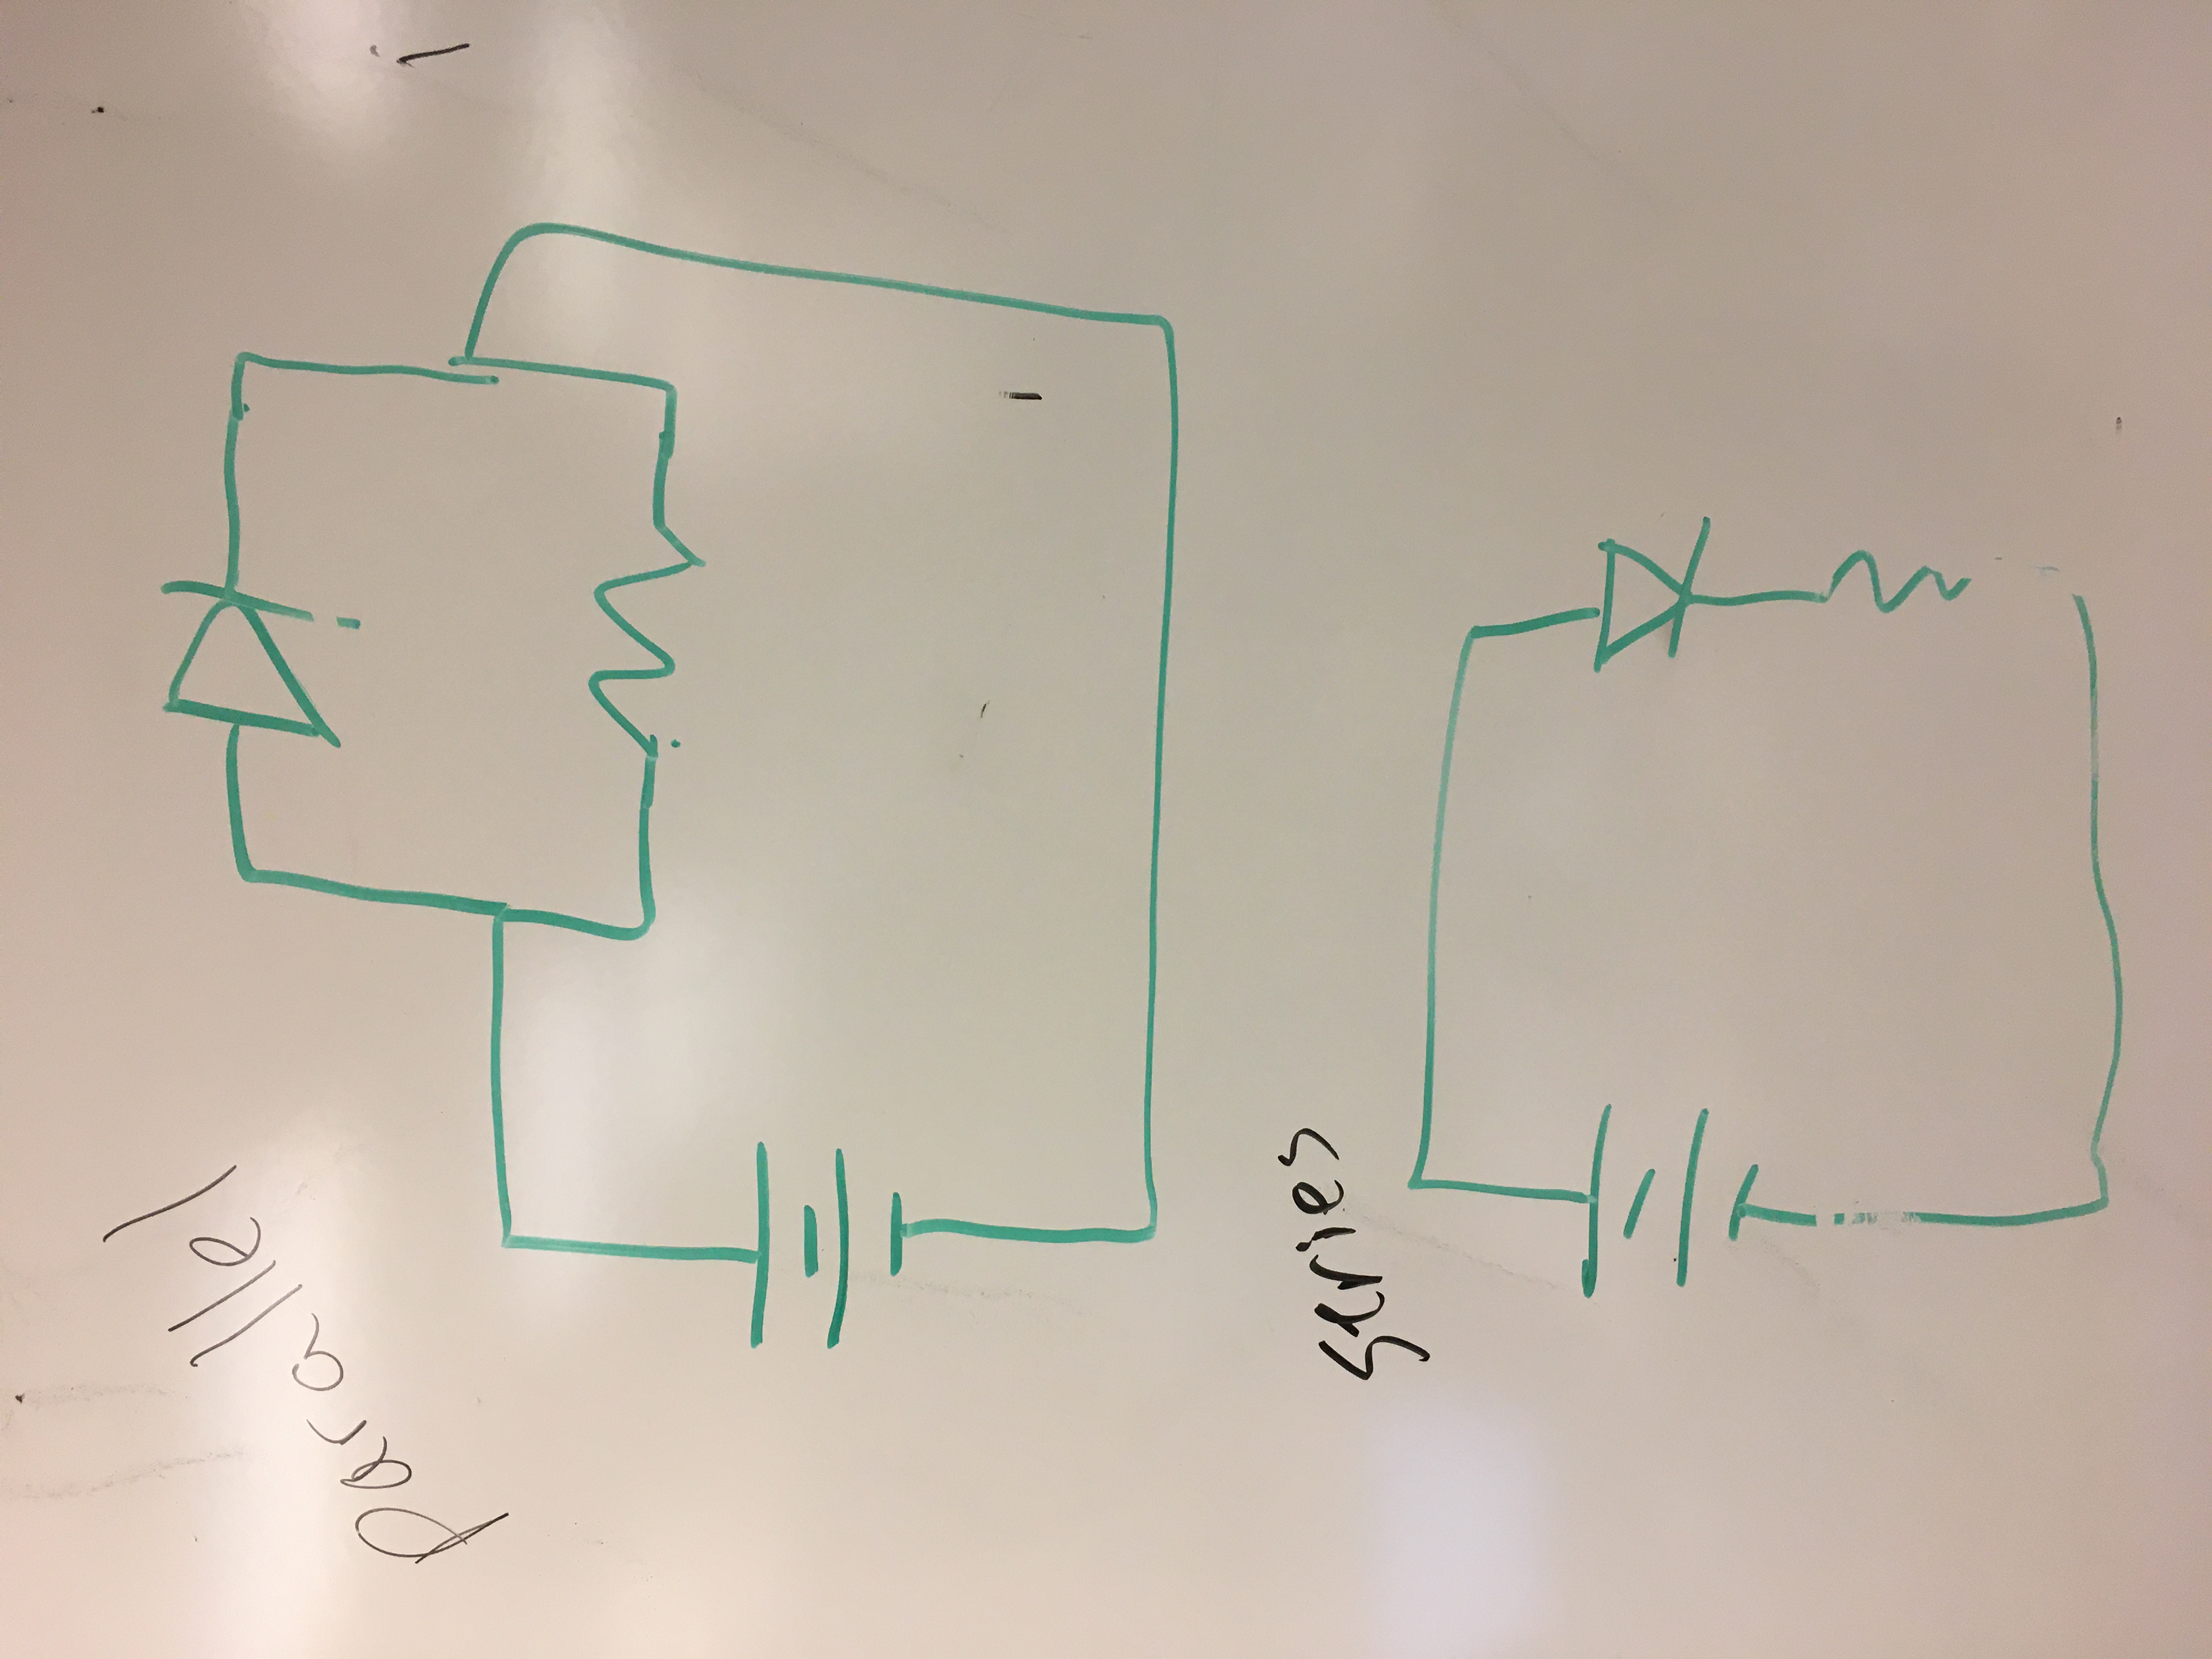 parallel
series